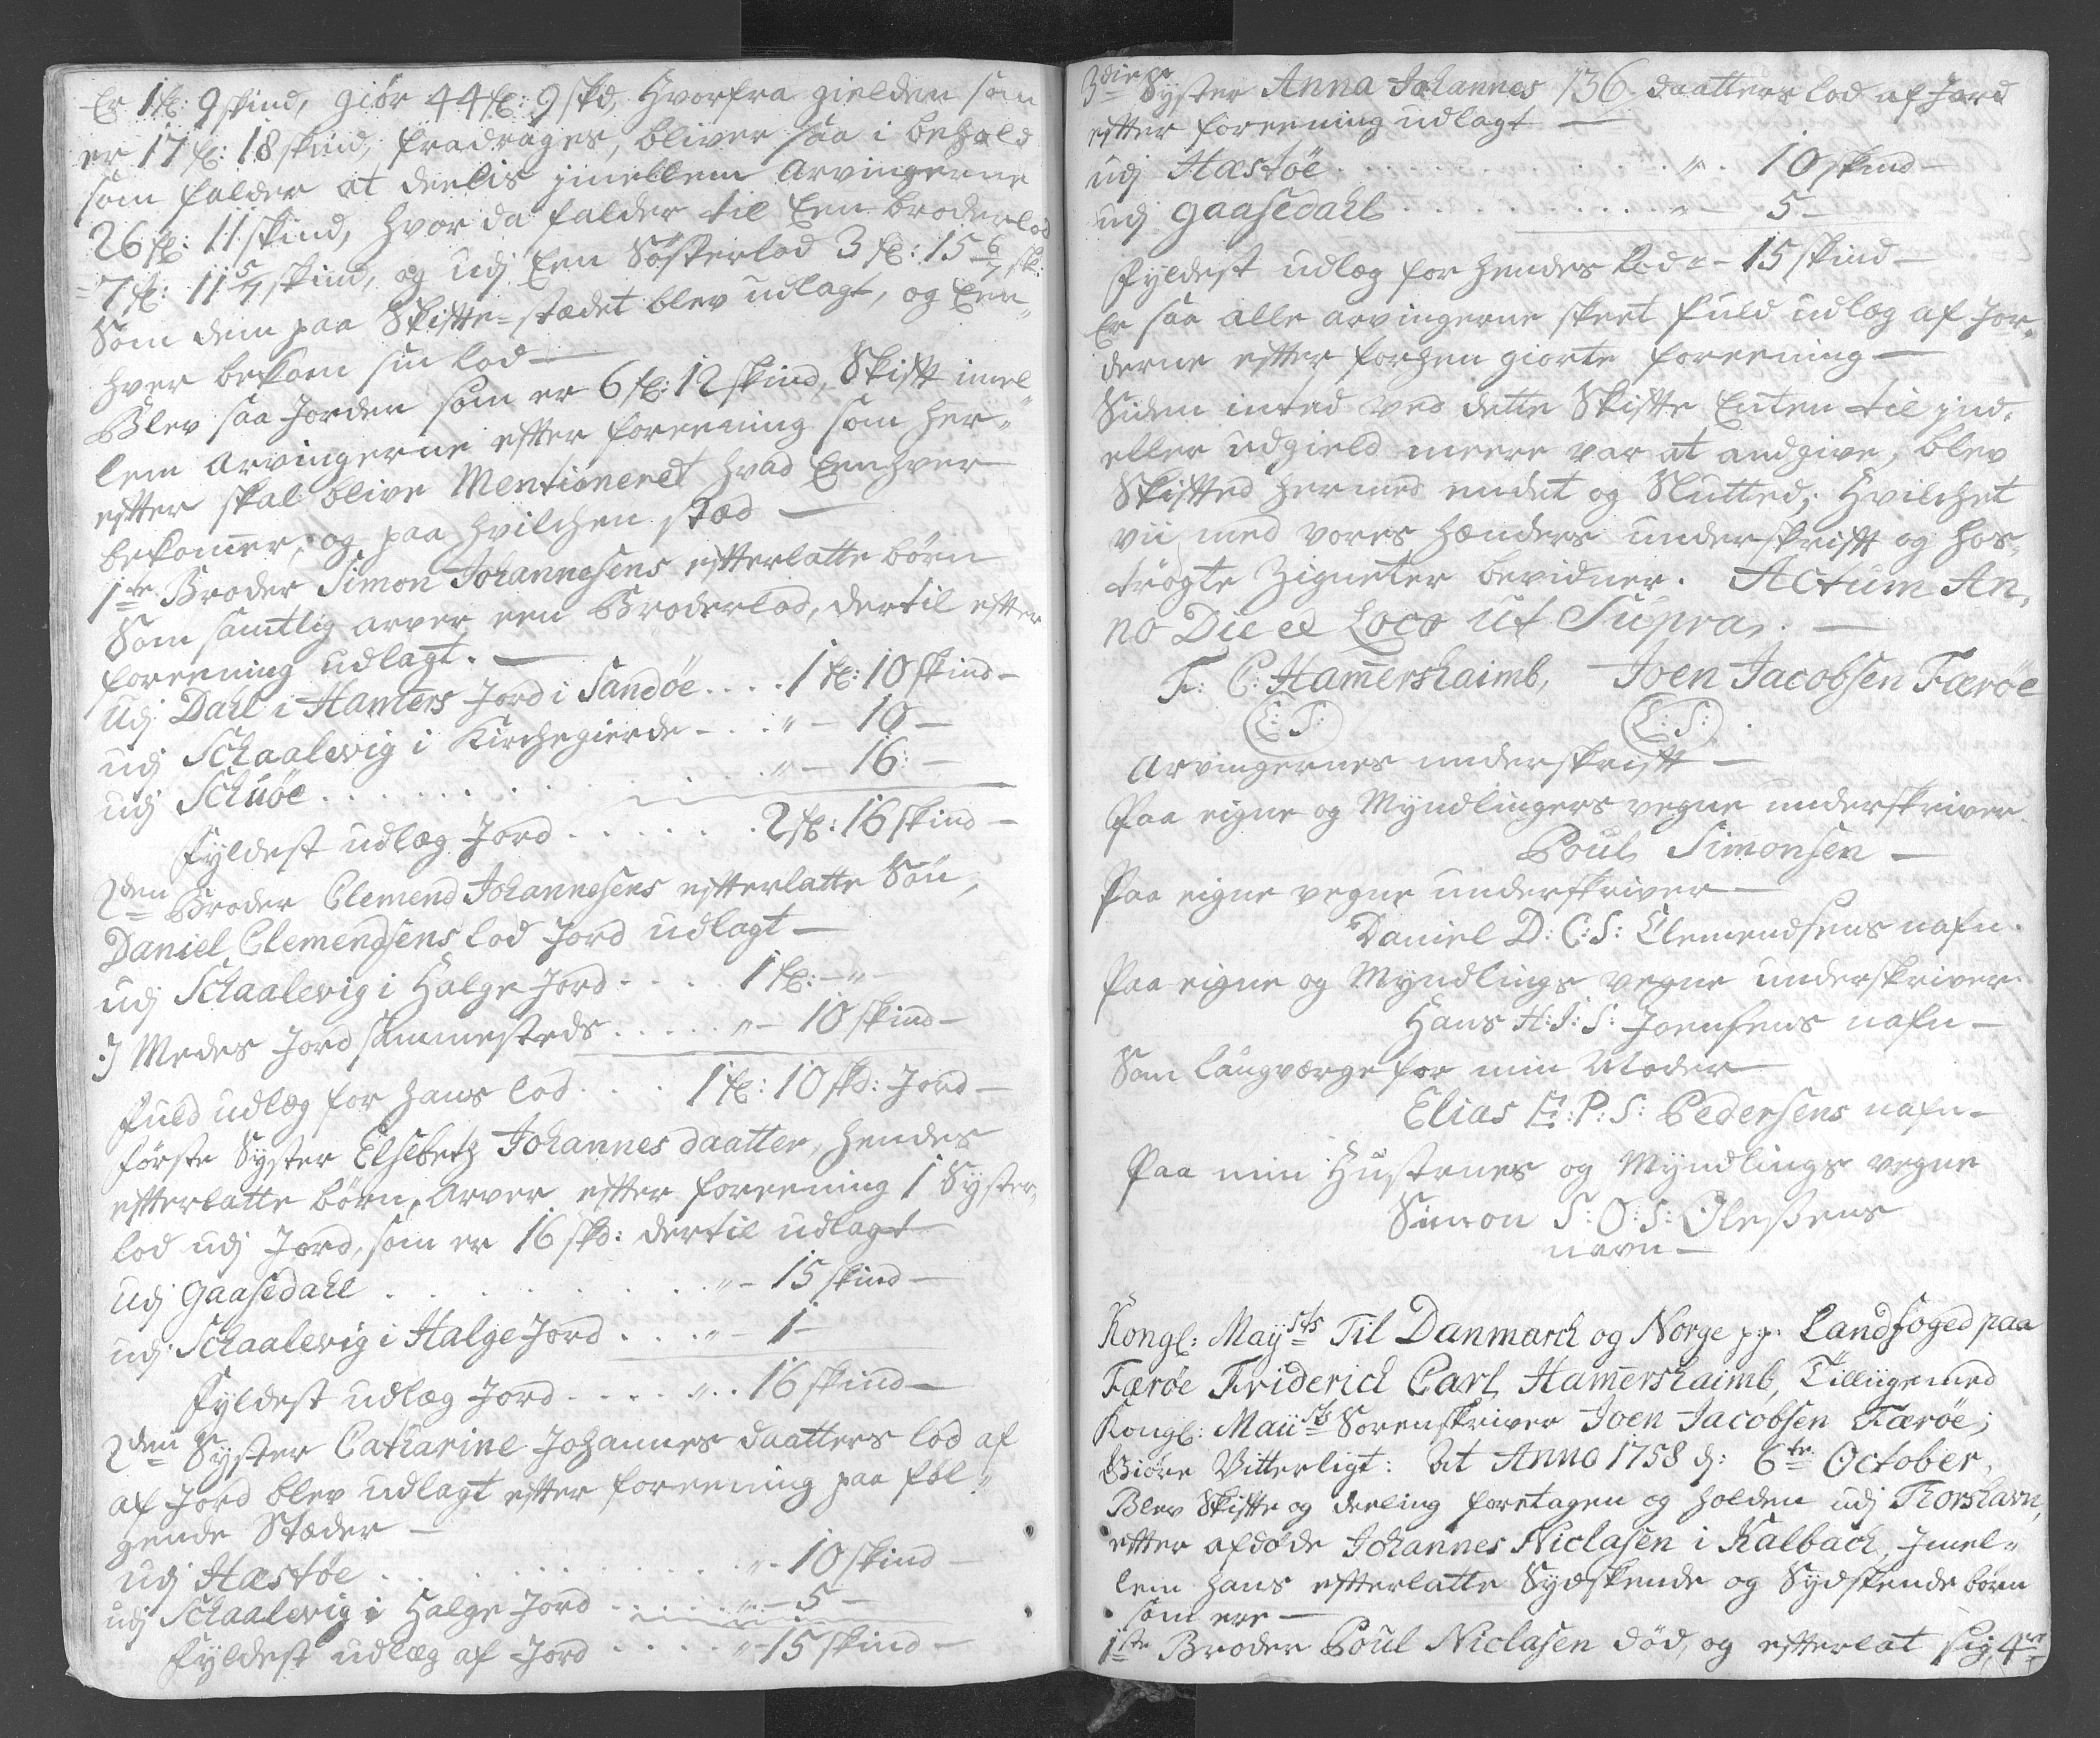 Er 1 fl: 9 skind, giör 44 fl: 9 skd, Hvorfra gielden som
er 17 fl: 18 skind, fradrages, bliver saa i behold
som falder at deelis jmellem Arvingerne
26 fl: 11 skind, hvor da falder til Een broderlod
7 fl: 11 5/7 skind, og udj Een Sösterlod 3 fl: 15 6/7 sk:
Som dem paa Skifte-stædet blev udlagt, og Een
hver bekom sin lod —
Blev saa Jorden som er 6 fl: 12 skind, Skift imel
lem Arvingerne efter foreening som her-
efter skal blive Mentioneret hvad Eenhver
bekomer, og paa hvilchen stæd —
1te Broder Simon Johannesens efterlatte börn
Som samtlig arver een Broderlod, dertil efter
foreening udlagt. —
Udj Dahl i Hamers Jord i Sandöe .... 1 fl: 10 skind —
udj Schaalevig i Kirchegierde - .. " - 10 —
udj Schuöe ........ " - 16: —
Fyldest udlæg Jord ...... 2 fl: 16 skind —
2den Broder Clemend Johannesens efterlatte Sön,
Daniel Clemendsens lod Jord udlagt —
udj Schaalevig i Halge Jord .... 1 fl: - "
J Medes Jord sammesteds ..... " - 10 skind —
Fuld udlæg for hans lod .... 1 fl: 10 skd: Jord —
förste Syster Elsebeth Johannes daatter, hendes
efterlatte börn, Arver efter foreening 1 Syster
lod udj Jord, som er 16 skd: dertil udlagt
Udj Gaasedahl ........ " - 15 skind —
udj Schaalevig i Halge Jord .... " - 1 —
Fyldest udlæg Jord .... " .. 16 skind —
2den Syster Catharine Johannes daatters lod af
af Jord blev udlagt efter foreening paa föl-
gende Stæder —
udj Hæstöe ......... " - 10 skind —
udj Schaalevig i Halge Jord ..... " - 5 —
Fyldest udlæg af Jord .... " - 15 skind —
136.
3die Syster Anna Johannes daatters lod af Jord
efter foreening udlagt —
udj Hæstöe ......... " . 10 skind —
udj Gaasedahl ......... " - 5 —
Fyldest udlæg for hendes Lod " - 15 skind —
Er saa alle arvingerne skeet fuld udlæg af Jor-
derne efter forhen giorte foreening —
Siden inted ved dette Skifte Enten til jnd-
eller udgield meere var at andgive, blev
Skifted hermed endet og Slutted; Hvilchet
vii med vores hænders underskrift og hos-
trögte Zigneter bevidner. Actum An-
no Die et Loco ut Supra. —
F: C: Hamershaimb, Joen Jacobsen Færöe
L: S: L: S:
Arvingernes underskrift —
Paa eigne og Myndlingers vegne underskriver
Poul Simonsen —
Paa eigne vegne underskriver —
Daniel D: C: S: Clemendsens nafn.
Paa eigne og Myndlings vegne underskriver
Hans H: J: S: Joensens nafn —
Som laugværge for min Moder —
Elias E: P: S: Pedersens nafn —
Paa min Hustrues og Myndlings vegne
Simon S: O: S: Olessens
navn —
Kongl: Mayts Til Danmarck og Norge pp. Landfoged paa
Færöe Friderich Carl Hamershaimb, Tilliigemed
Kongl: Maiits Sorenskriver Joen Jacobsen Færöe;
Giöre Vitterligt: At Anno 1758 d: 6te October,
Blev Skifte og deeling foretagen og holden udj Thorshavn,
efter afdöde Johannes Niclasen i Kalbach, Jmel-
lem hans efterlatte Sydskende og Sydskende börn
som ere —
1ste Broder Poul Niclasen död, og efterlat sig, 4re